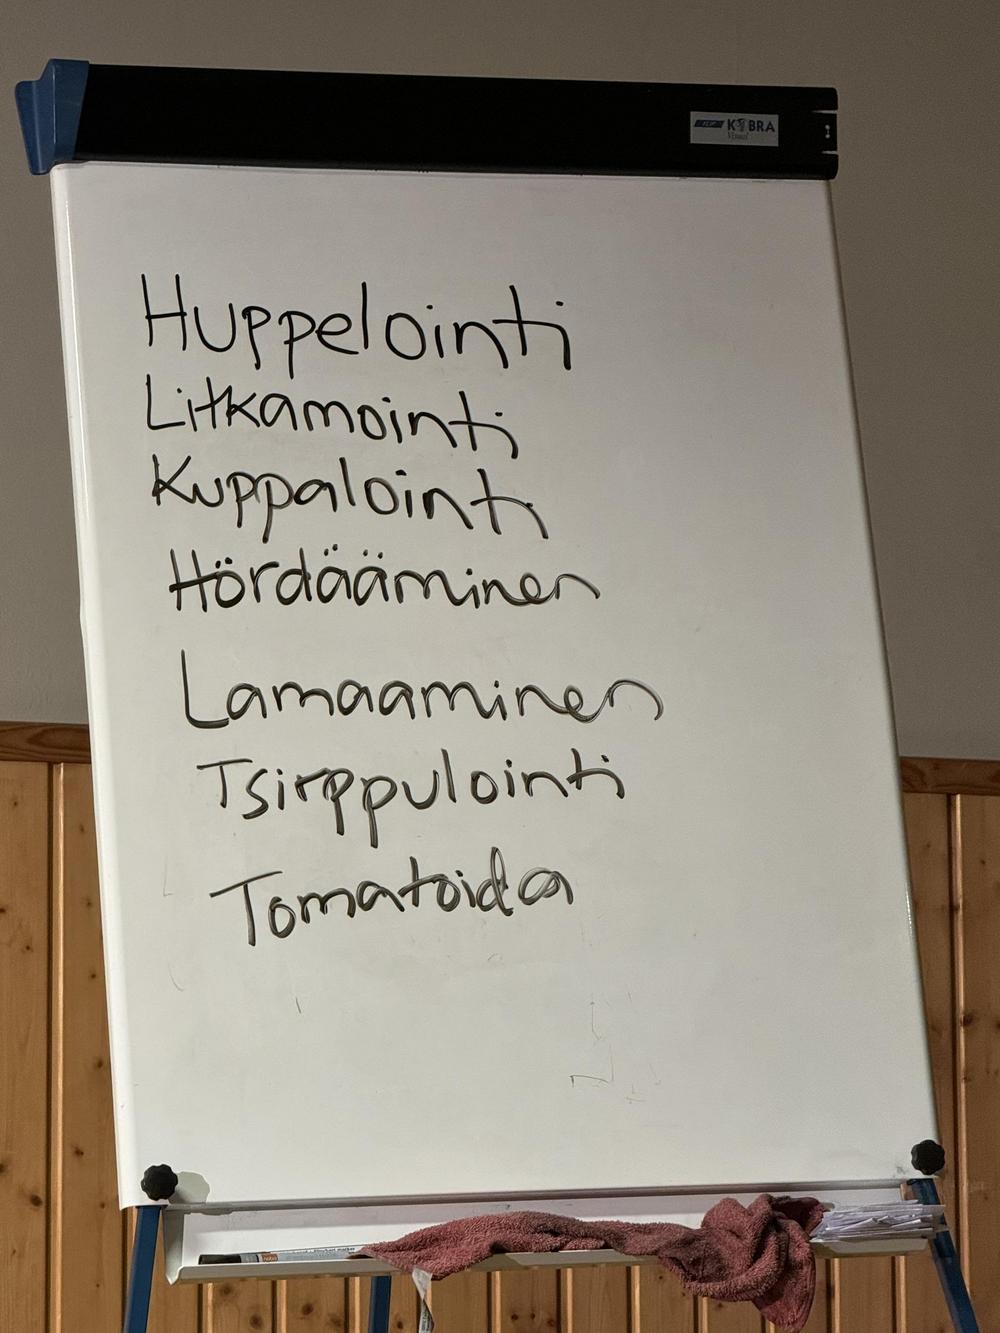 KOBRA
Huppelointi
Litkamointi
Kuppalointi
Hördääminen
Lamaaminen
Tsirppulointi
Tomatoida